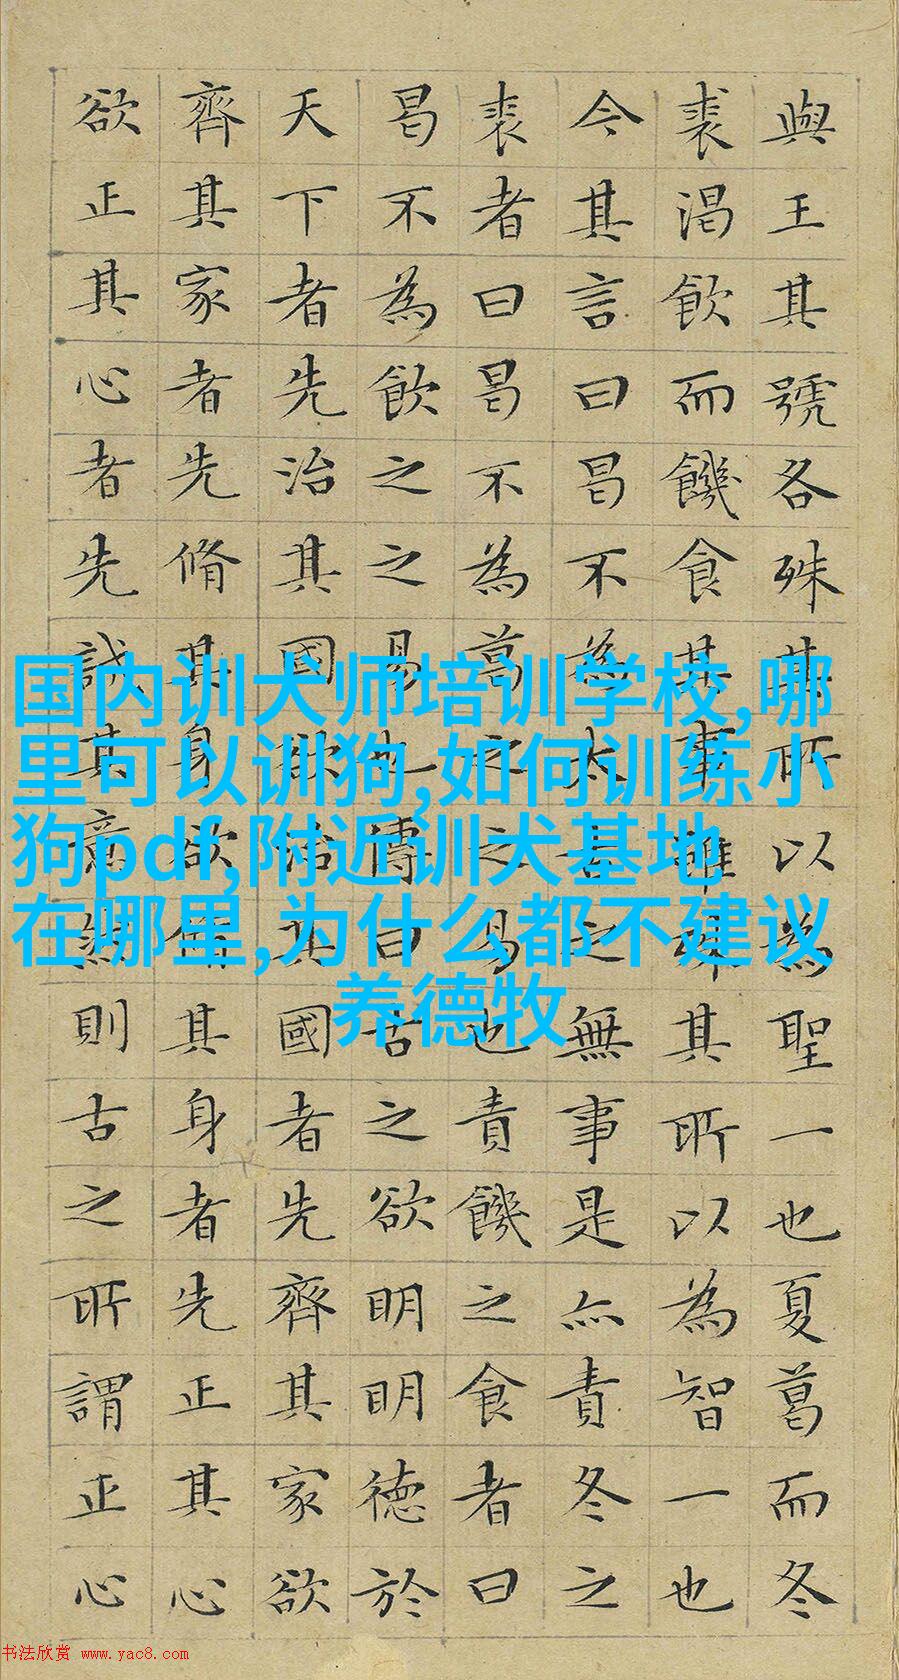 與王其號各殊其所以為聖一也夏葛而冬
裘渴飲而饑食其事雖殊其所以為智一也
今其言曰曷不為太古之無事是亦責冬之
裘者曰曷不為葛之之易也責饑之食者曰
曷不為飲之之易也傳曰古之欲明明德於
天下者先治其國欲治其國者先齊其家欲
齊其家者先脩其身欲脩其身者先正其心
欲正其心者先誠其意然則古之所謂正心
国内训犬师培训学校,哪
里可以训狗,如何训练小
狗pdf,附近训犬基地
在哪里,为什么都不建议
养德牧
书法欣赏 www.yac8.com